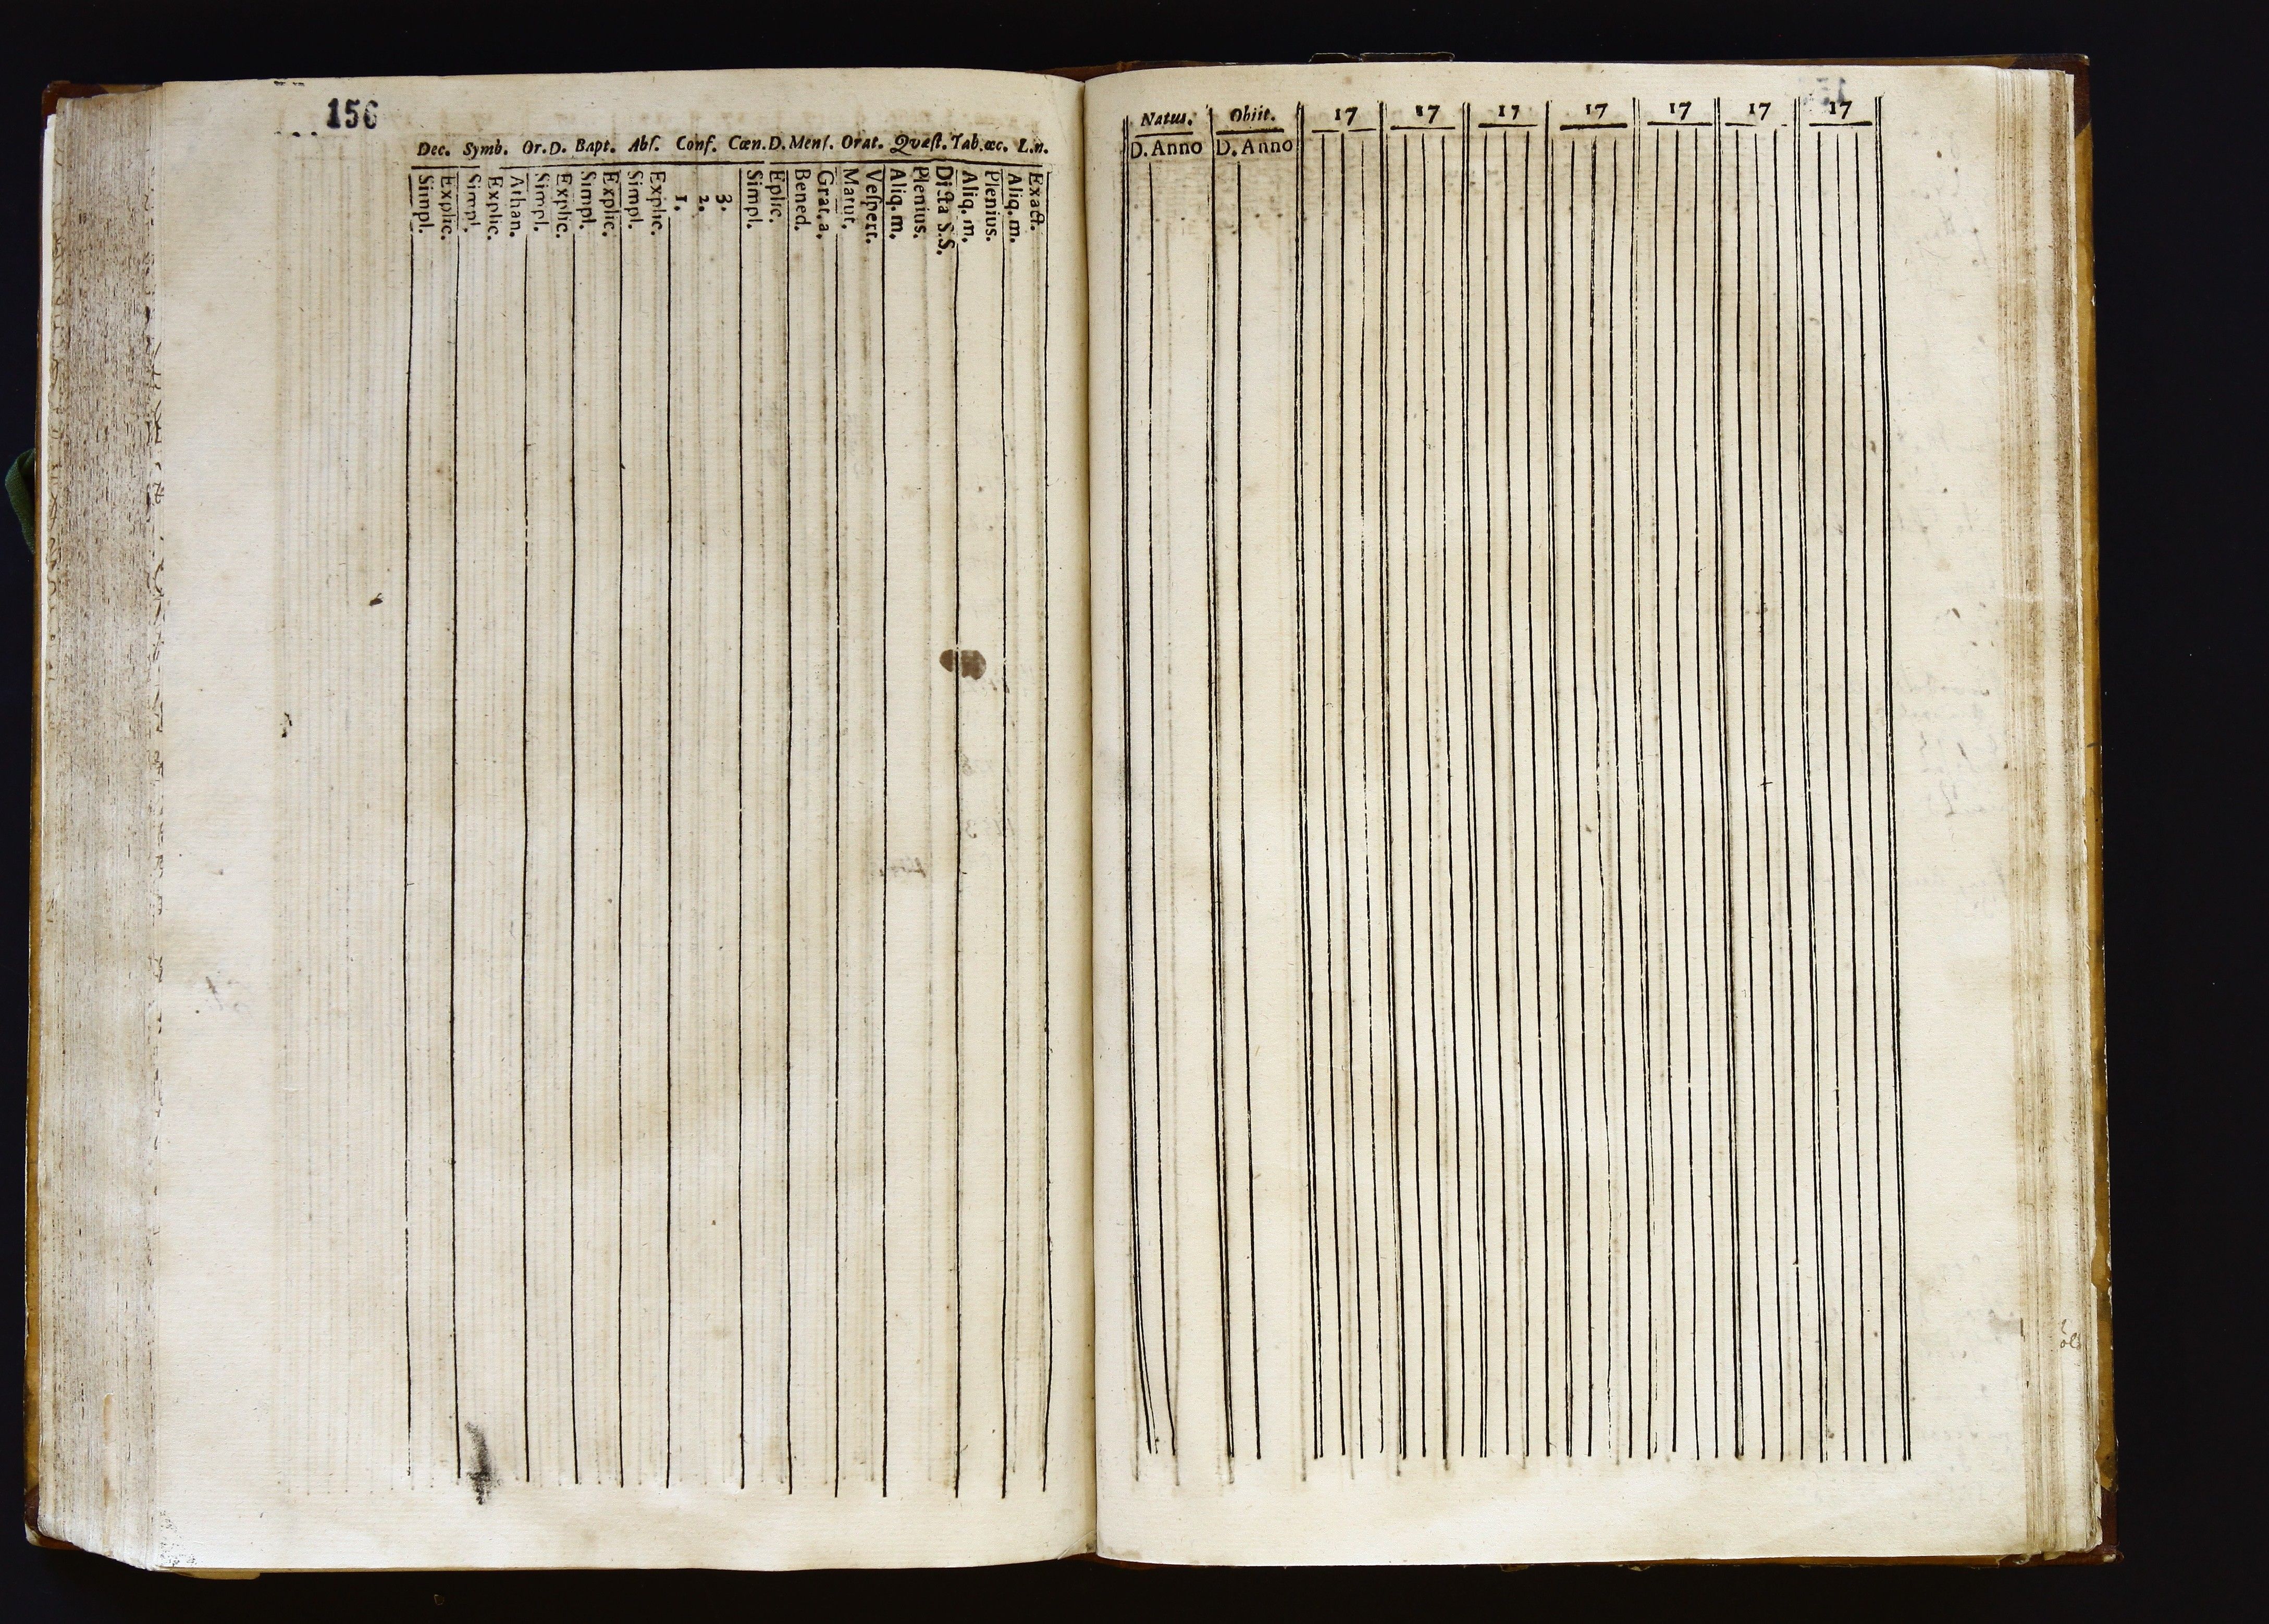 156
Dec. Symb. Or.D. Bapt. Abſ. Conf. Cœn.D. Menſ. Orat. Qvæſt. Tab.œc. L.n.
Simpl.
Explic.
Simpl.
Explic.
Athan.
Simpl.
Explic.
Simpl.
Explic.
Simpl.
Explic.
1.
2.
3.
Simpl.
Eplic.
Bened.
Grat.a.
Matut.
Veſpert.
Aliq.m.
Plenius.
Dicta S.S.
Aliq.m.
Plenius.
Aliq.m.
Exact.
Natus. Obiit. 17 17 17 17 17 17 17
D. Anno D. Anno